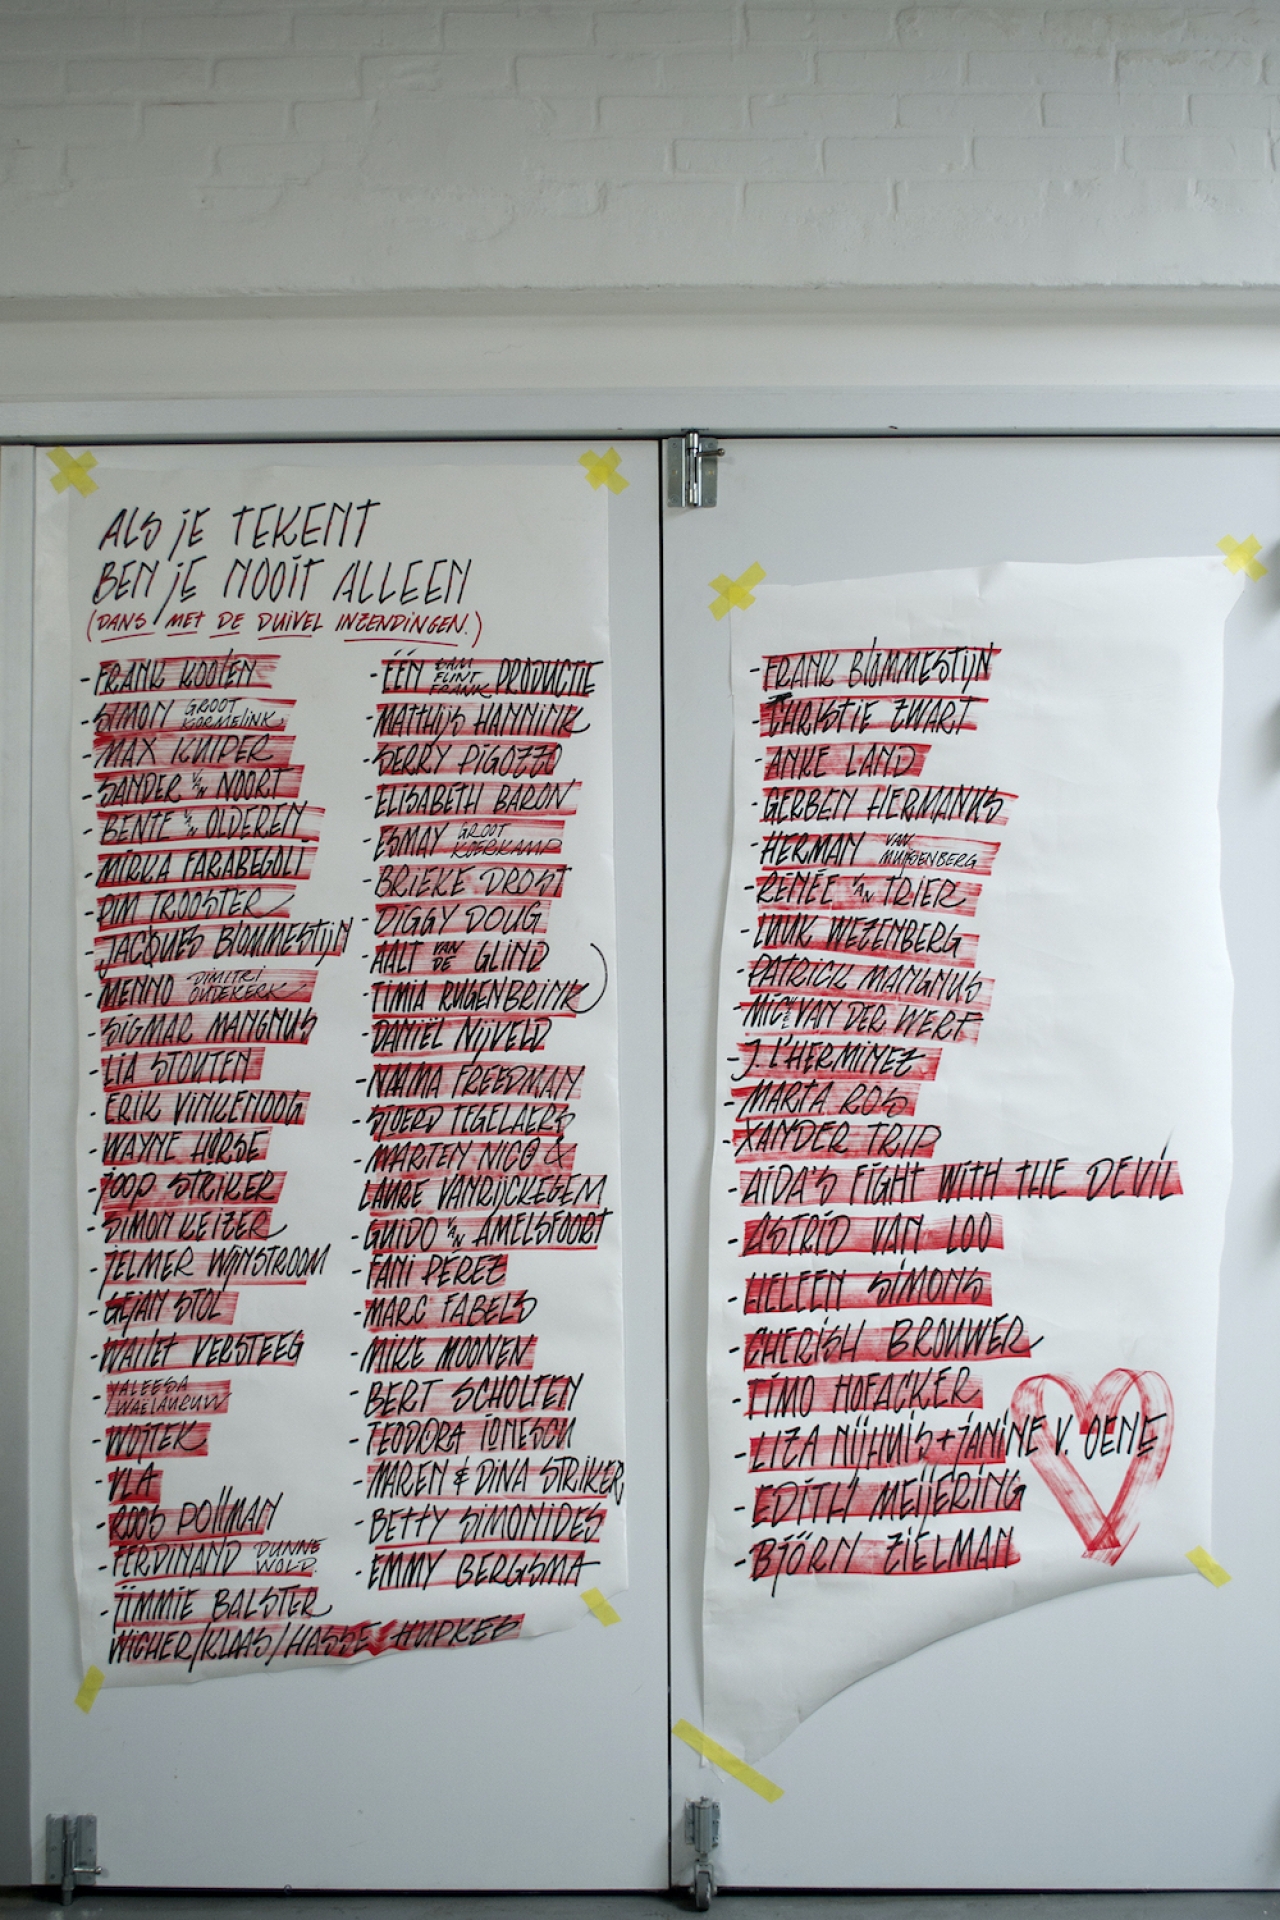 ALS JE TEKENT
BEN JE NOOIT ALLEEN
(DANS MET DE DUIVEL INZENDINGEN.)
- FRANK KOOIEN
- SIMON GROOT KORMELINK
- MAX KUIPER
- SANDER VAN NOORT
- BENTE VAN OLDEREN
- MIRKA FARABEGOLI
- PIM TROOSTER
- JACQUES BLOMMESTIJN
- MENNO DIMITRI OUDEKERK
- SIGMAR MANGNUS
- LIA STOUTEN
- ERIK VINKENOOG
- WAYNE HORSE
- JOOP STRIKER
- SIMON KEIZER
- JELMER WIJNSTROOM
- GEJAN STOL
- WALLET VERSTEEG
- WOJTEK
- VLA
- ROOS POLLMAN
- FERDINAND DUNNEWOLD.
- JIMMIE BALSTER
WICHER/KLAAS/HASSE HUPKES
- ÉÉN FLINT FRANK PRODUCTIE
- MATTHIJS HANNINK
- GERRY PIGOZZO
- ELISABETH BARON
- ESMAY GROOT KOERKAMP
- BRIEKE DROST
- DIGGY DOUG
- AALT VAN DE GLIND
- TIMIA RUGENBRINK
- DANIËL NIJVELD
- NAAMA FREEDMAN
- SJOERD TEGELAERS
- MARTEN NICO &
LAURE VANRIJCKEGEM
- GUIDO VAN AMELSFOORT
- FANI PÉREZ
- MARC FABELS
- MIKE MOONEN
- BERT SCHOLTEN
- TEODORA IONESCU
- MAREN & DINA STRIKER
- BETTY SIMONIDES
- EMMY BERGSMA
- FRANK BLOMMESTIJN
- CHRISTIE ZWART
- ANKE LAND
- GERBEN HERMANUS
- HERMAN VAN MUIJDENBERG
- RENÉE VAN TRIER
- LUUK WEZENBERG
- PATRICK MANGNUS
- VAN DER WERF
- J. L'HERMINEZ
- MARTA ROS
- XANDER TRIP
- AIDA'S FIGHT WITH THE DEVIL
- ASTRID VAN LOO
- HELEEN SIMONS
- CHERISH BROUWER
- TIMO HOFACKER
- LIZA NIJHUIS + JANINE V. OENE
- EDITH MEIJERING
- BJÖRN ZIELMAN